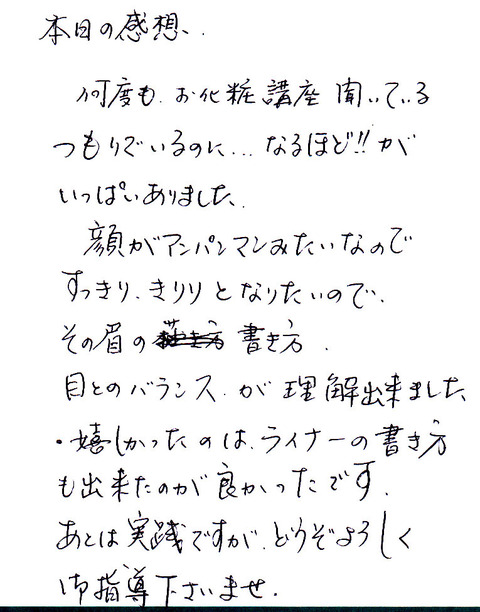 本日の感想、
何度も、お化粧講座 聞いている
つもりでいるのに… なるほど!!が
いっぱいありました。
顔がアンパンマンみたいなので
すっきり、きりりとなりたいので、
その眉の 書き方、
目とのバランス、が 理解出来ました。
・嬉しかったのは、ライナーの書き方
も出来たのが良かったです。
あとは実践ですが、どうぞよろしく
御指導下さいませ。